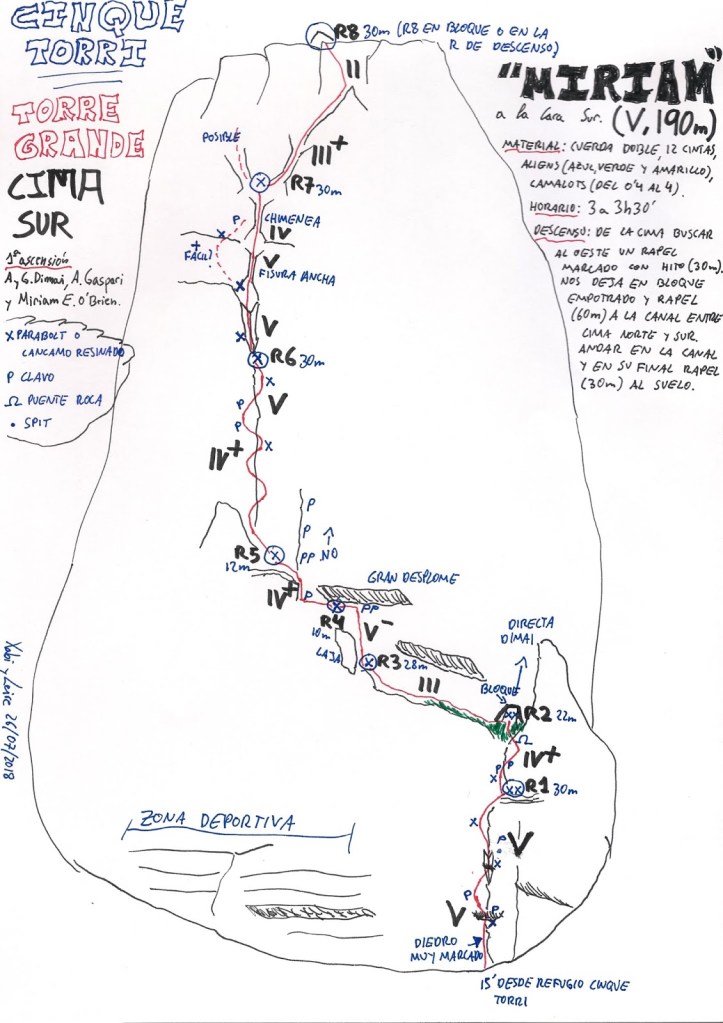 CINQUE
TORRI
TORRE
GRANDE
CIMA
SUR
1ª ascensión
A. y G. Dimai, A. Gaspari
y Miriam E. O'Brien.
X PARABOLT O
CANCAMO RESINADO
P CLAVO
Ω PUENTE ROCA
• SPIT
"MIRIAM"
a la Cara Sur. (V, 190m)
MATERIAL: CUERDA DOBLE, 12 CINTAS,
ALIENS (AZUL, VERDE Y AMARILLO),
CAMALOTS (DEL 0'4 AL 4).
HORARIO: 3 a 3h30'
DESCENSO: DE LA CIMA BUSCAR
AL OESTE UN RAPEL
MARCADO CON HITO (30m).
NOS DEJA EN BLOQUE
EMPOTRADO Y RAPEL
(60m) A LA CANAL ENTRE
CIMA NORTE Y SUR.
ANDAR EN LA CANAL
Y EN SU FINAL RAPEL
(30m) AL SUELO.
R8 30m (R8 EN BLOQUE O EN LA
R DE DESCENSO)
II
POSIBLE
III+
R7 30m
P
CHIMENEA
IV
X
+
FÁCIL
V
FISURA ANCHA
X
V
X
R6 30m
X
V
P
P
X
IV+
P
P
R5
12m
PP NO
IV+
P
GRAN DESPLOME
X
PP
R4
10m
V-
LAJA
X
R3 28m
III
DIRECTA
DIMAI
BLOQUE
XX
R2 22m
Ω
IV+
P
P
X
XX
R1 30m
X
P
V
X
P
V
P
X
DIEDRO
MUY MARCADO
15' DESDE REFUGIO CINQUE
TORRI
ZONA DEPORTIVA
26/07/2018